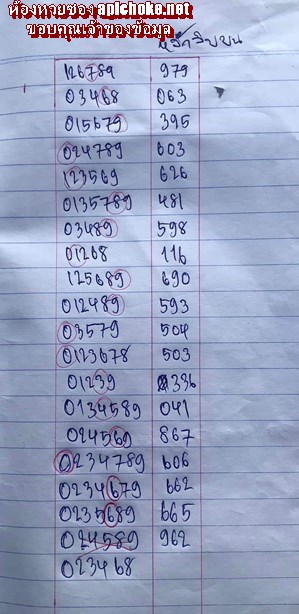 ห้องหวยซอง apichoke.net
ขอบคุณเจ้าของข้อมูล
126789 979
03468 063
015679 395
024789 603
123569 626
0135789 481
03489 598
01268 116
125689 690
012489 593
03579 504
0123678 503
01239 336
0134589 041
024569 867
0234789 606
0234679 662
0235689 665
024589 962
023468